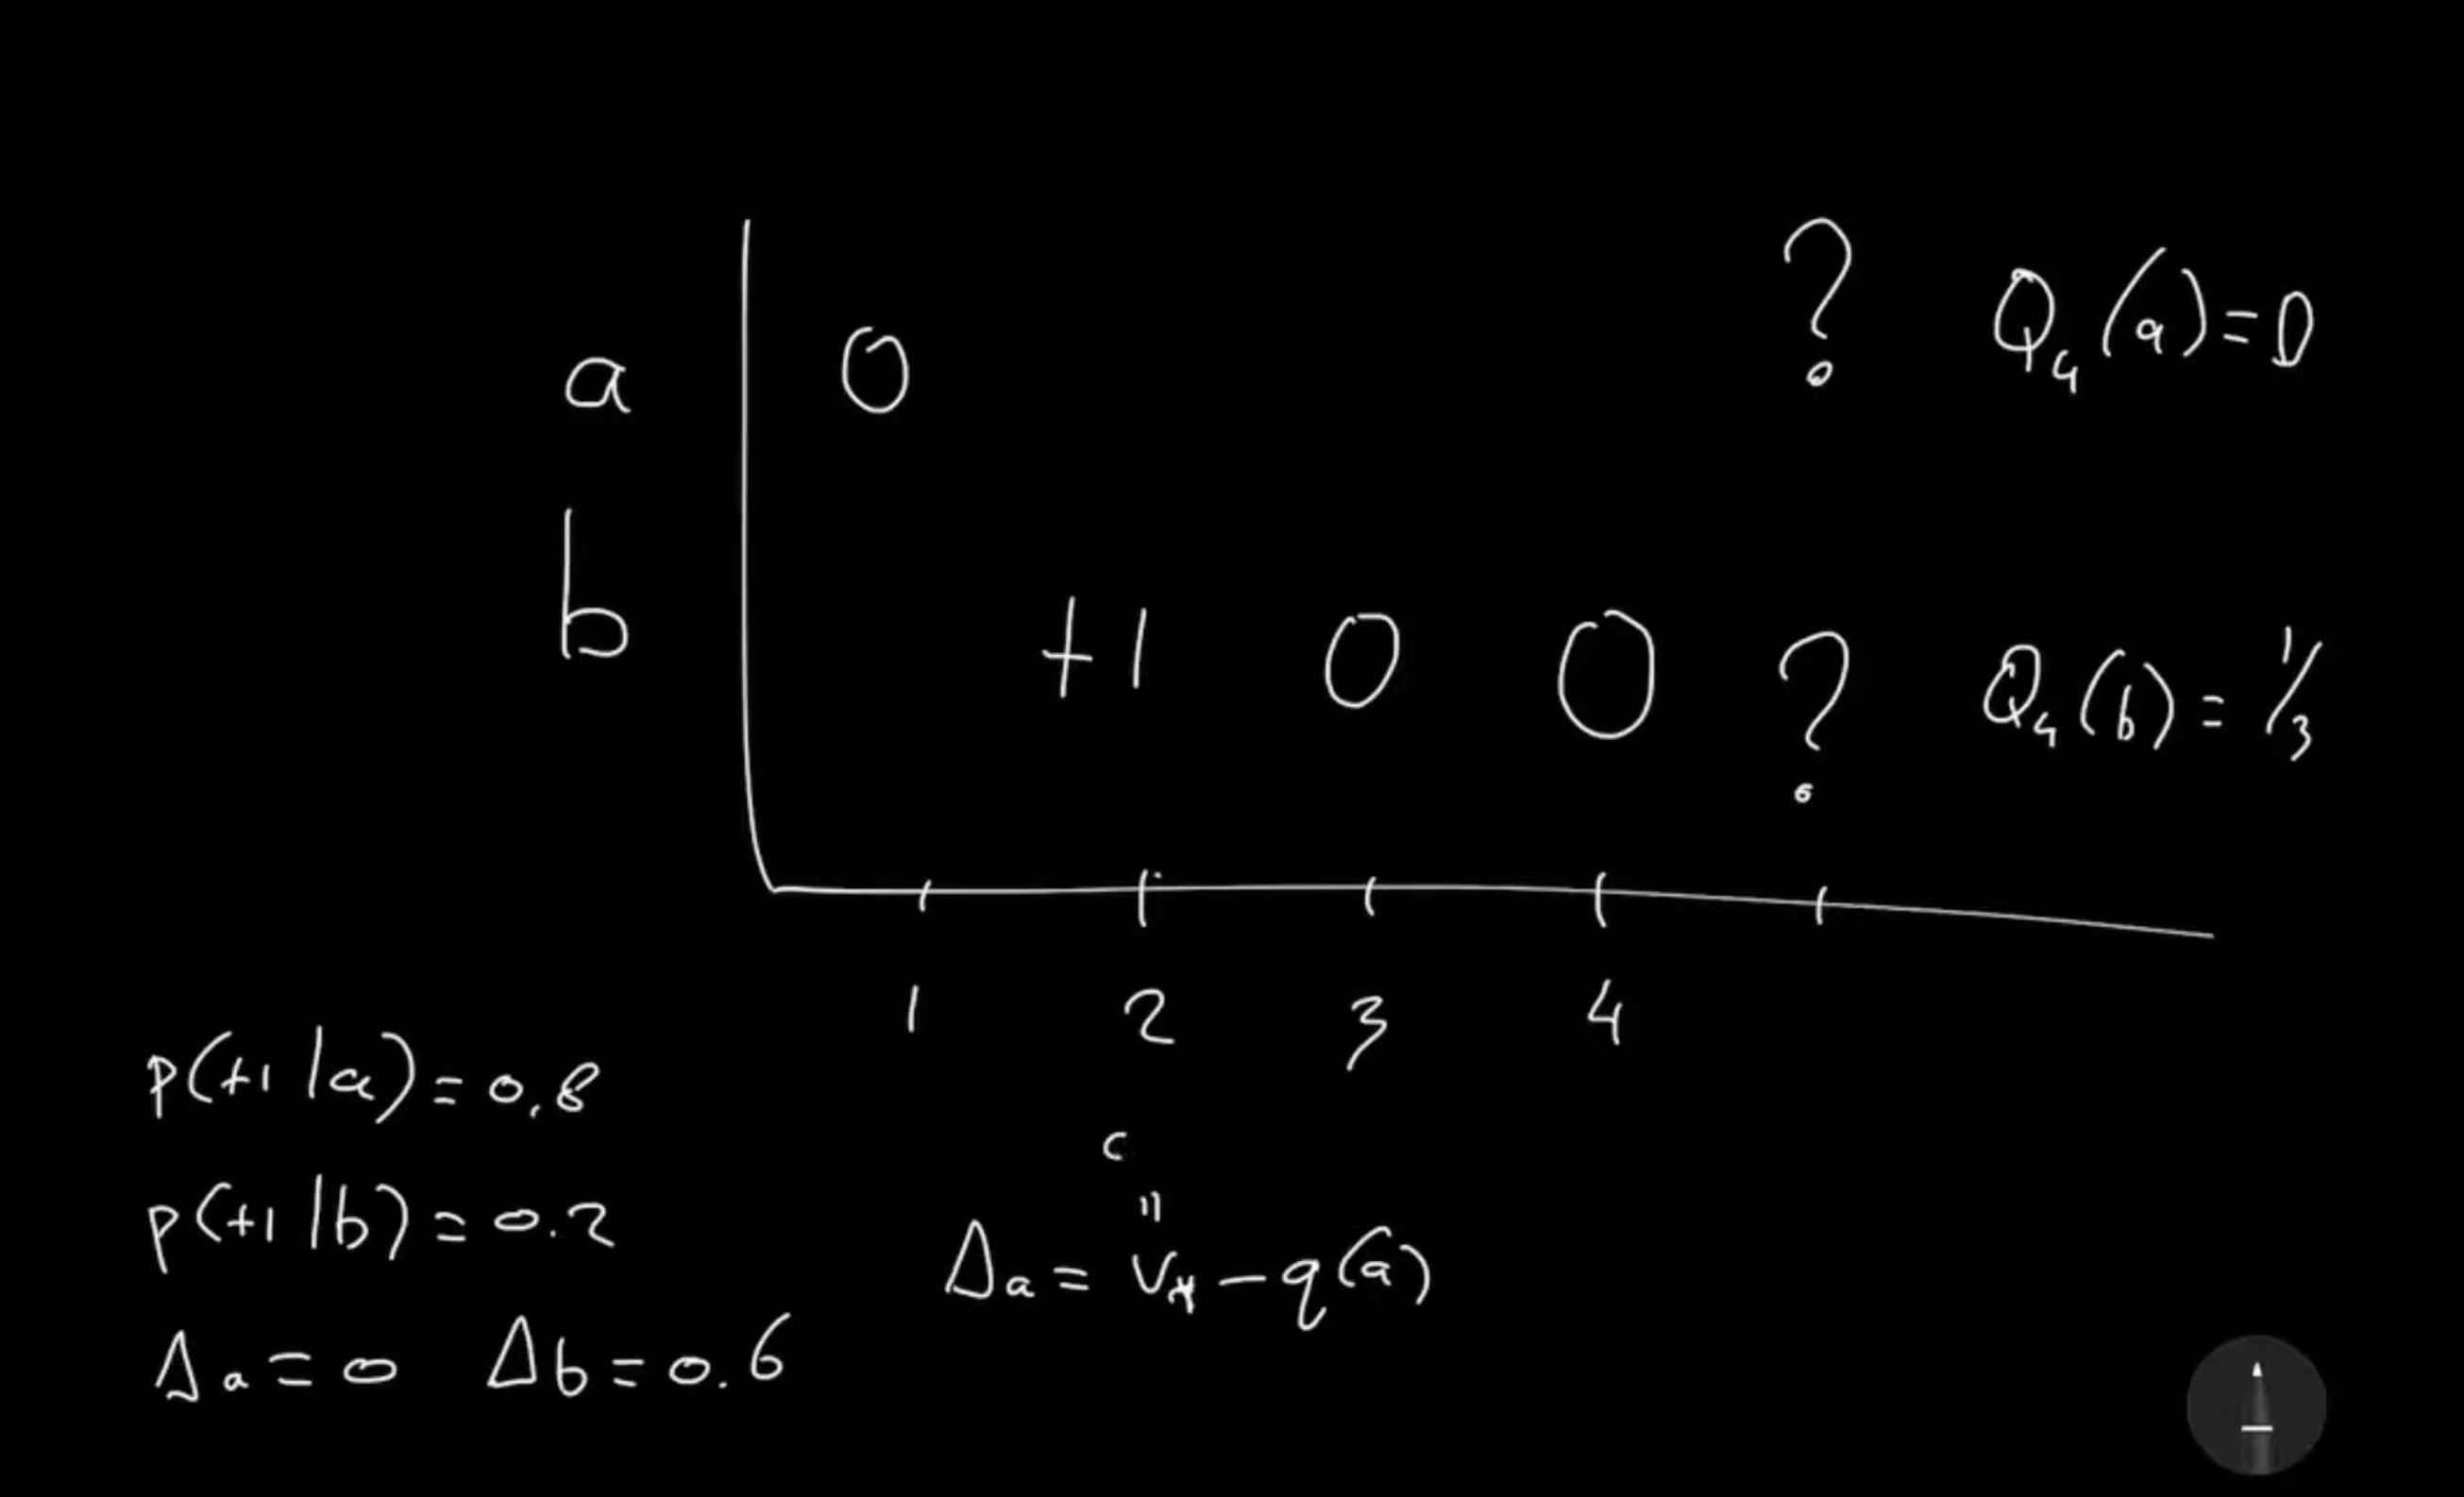 ? Q₄(a)=0
a 0
b +1 0 0 ? Q₄(b)=1/3
1 2 3 4
p(+1|a)=0.8
p(+1|b)=0.2
Δa=0 Δb=0.6
Δa=v*-q(a)